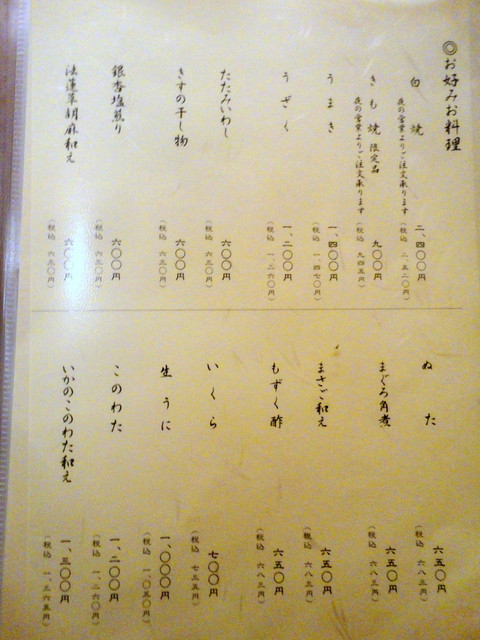 ◎お好みお料理
白焼
夜の営業よりご注文承ります
二、四〇〇円
（税込 二、五二〇円）
きも焼 限定品
夜の営業よりご注文承ります
九〇〇円
（税込 九四五円）
うまき
一、四〇〇円
（税込 一、四七〇円）
うざく
一、二〇〇円
（税込 一、二六〇円）
たたみいわし
六〇〇円
（税込 六三〇円）
きすの干し物
六〇〇円
（税込 六三〇円）
銀杏塩煎り
六〇〇円
（税込 六三〇円）
法蓮草胡麻和え
六〇〇円
（税込 六三〇円）
ぬた
六五〇円
（税込 六八三円）
まぐろ角煮
六五〇円
（税込 六八三円）
まさご和え
六五〇円
（税込 六八三円）
もずく酢
六五〇円
（税込 六八三円）
いくら
七〇〇円
（税込 七三五円）
生うに
一、〇〇〇円
（税込 一、〇五〇円）
このわた
一、二〇〇円
（税込 一、二六〇円）
いかのこのわた和え
一、三〇〇円
（税込 一、三六五円）